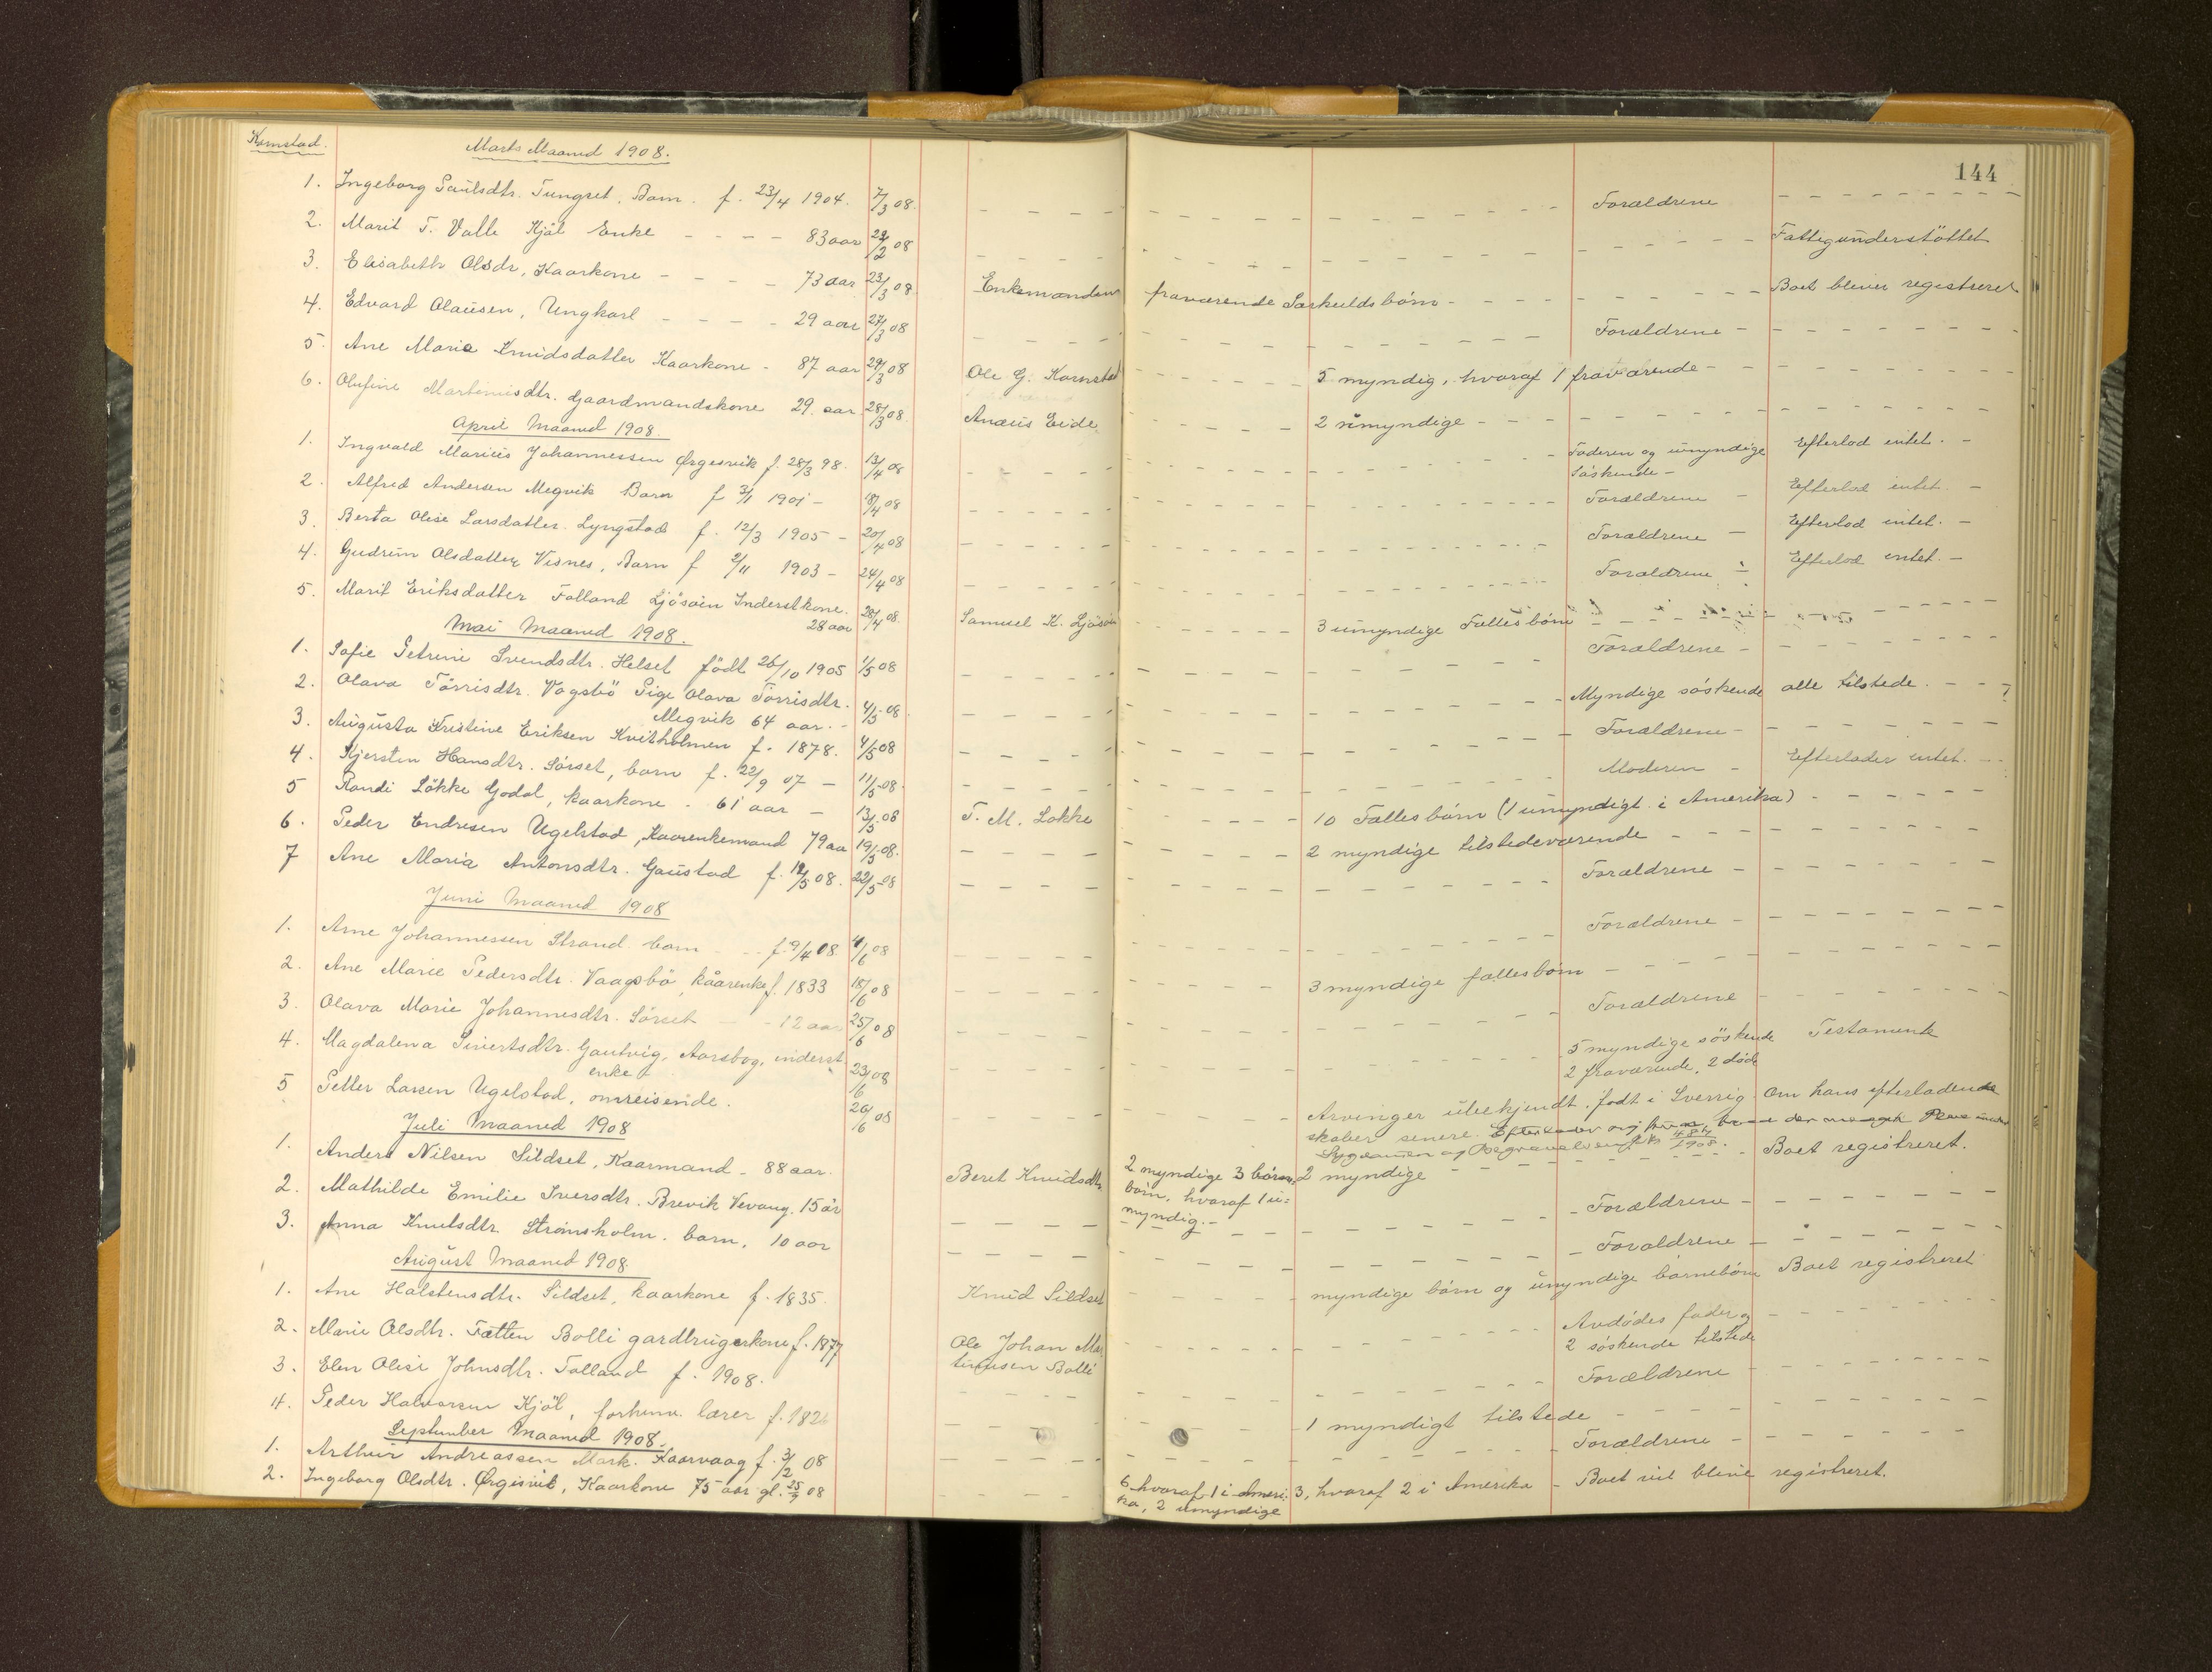 Kornstad. Marts Maaned 1908. 144
1. Ingeborg Paulsdtr. Tungset. Barn. f. 23/4 1904. 7/3 08. Forældrene
2. Marit T. Valle Kjøl Enke 83 aar 29/2 08 Fattigunderstöttet
3. Elisabeth Olsdr, Kaarkone 73 aar 23/3 08 Enkemanden fraværende Særkuldsbörn Boet bliver registreret
4. Edvard Olausen, Ungkarl 29 aar 27/3 08 Forældrene
5. Ane Maria Knudsdatter Kaarkone 87 aar 29/3 08 Ole G. Kornstad 5 myndig, hvoraf 1 fraværende
6. Olufine Martinusdtr. Gaardmandskone 29 aar 28/3 08 Anæus Eide 2 umyndige
April Maaned 1908.
1. Ingvald Marius Johannessen Ørgesvik f. 28/3 98. 13/4 08 Faderen og umyndige Efterlod intet.
Söskende
2. Alfred Andersen Megvik Barn f 3/11 1901 18/4 08 Forældrene Efterlod intet.
3. Berta Olise Larsdatter. Lyngstad f. 12/3 1905 20/4 08 Forældrene Efterlod intet.
4. Gudrun Olsdatter Visnes, Barn f 2/11 1903 24/4 08 Forældrene Efterlod intet.
5. Marit Eriksdatter Folland Ljösøien Inderstkone. 28/4 08. Samuel K. Ljösøien 3 umyndige Fællesbörn
28 aar
Mai Maaned 1908.
1. Sofie Petrine Svendsdtr. Helset födt 26/10 1905 1/5 08 Forældrene
2. Olava Törrisdtr. Vagsbö Pige Olava Törrisdtr. 4/5 08 Myndige söskende alle tilstede.
Megvik 64 aar.
3. Augusta Kristine Eriksen Kvitholmen f. 1878. 4/5 08 Forældrene
4. Kjersten Hansdtr. Sörset, barn f. 22/9 07 11/5 08 Moderen Efterlader intet.
5 Randi Lökke Godal, kaarkone. 61 aar 13/5 08 T. M. Lokke 10 Fællesbörn (1 umyndigt i Amerika)
6. Peder Endresen Ugelstad, Kaarenkemand 79 aa 19/5 08. 2 myndige tilstedeværende
7 Ane Maria Antonsdtr. Gaustad f. 12/5 08. 22/5 08 Forældrene
Juni Maaned 1908
1. Arne Johannessen Strand barn f. 9/4 08 4/6 08 Forældrene
2. Ane Marie Pedersdtr. Vaagsbö, kåarenke f. 1833 18/6 08 3 myndige fællesbörn
3. Olava Marie Johannesdtr. Sörset 12 aar 25/6 08 Forældrene
4. Magdalena Sivertsdtr. Gautvig, Aarsbog, inderst 23/6 08 5 myndige söskende Testamente
enke 2 fraværende, 2 døde
5 Petter Larsen Ugelstad, omreisende. 20/6 08 Arvinger ubekjendt. födt i Sverrig. Om hans efterladen
skaber senere.
Juli Maaned 1908
1. Anders Nilsen Sildset, Kaarmand 88 aar. Beret Knudsdtr. 2 myndige 3 barne= 2 myndige Boet registreret.
börn, hvoraf 1 u=
myndig.
2. Mathilde Emilie Iversdtr. Brevik Vevang. 15 år Forældrene
3. Anna Knutsdtr. Strömsholm. barn, 10 aar Forældrene
August Maaned 1908.
1. Ane Halstensdtr. Sildset, kaarkone f. 1835. Knud Sildset myndige börn og umyndige barnebörn Boet registreret
2. Marie Olsdtr. Fætten Bolli gardbrugerkone f. 1877 Ole Johan Mar Avdödes fader og
tinusen Bolli 2 söskende tilstede
3. Elen Olise Johnsdtr. Folland f. 1908. Forældrene
4. Peder Halvorsen Kjöl, forhenv. lærer f. 1826 1 myndigt tilstede
September Maaned 1908.
1. Arthur Andreassen Mork. Kaarvaag f. 3/2 08 Forældrene
2. Ingeborg Olsdtr. Ørgisvik, Kaarkone 75 aar gl. 25/9 08 6 hvoraf 1 i Ameri- 3, hvoraf 2 i Amerika Boet vil blive registreret.
ka, 2 umyndige